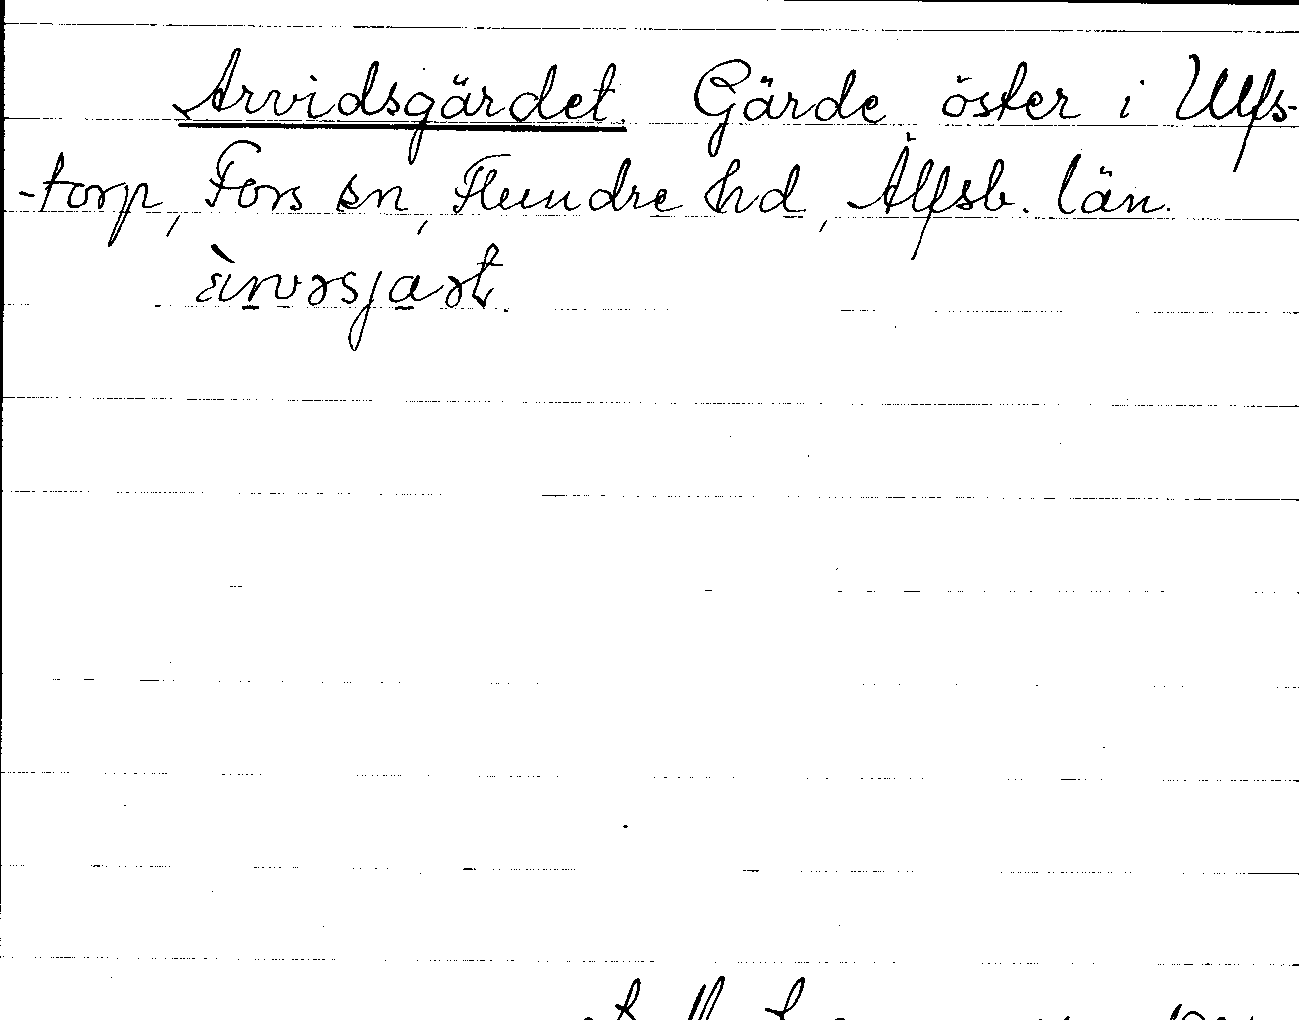 Arvidsgärdet. Gärde öster i Ulfs-
-torp, Fors sn, Flundre hd, Älfsb. län.